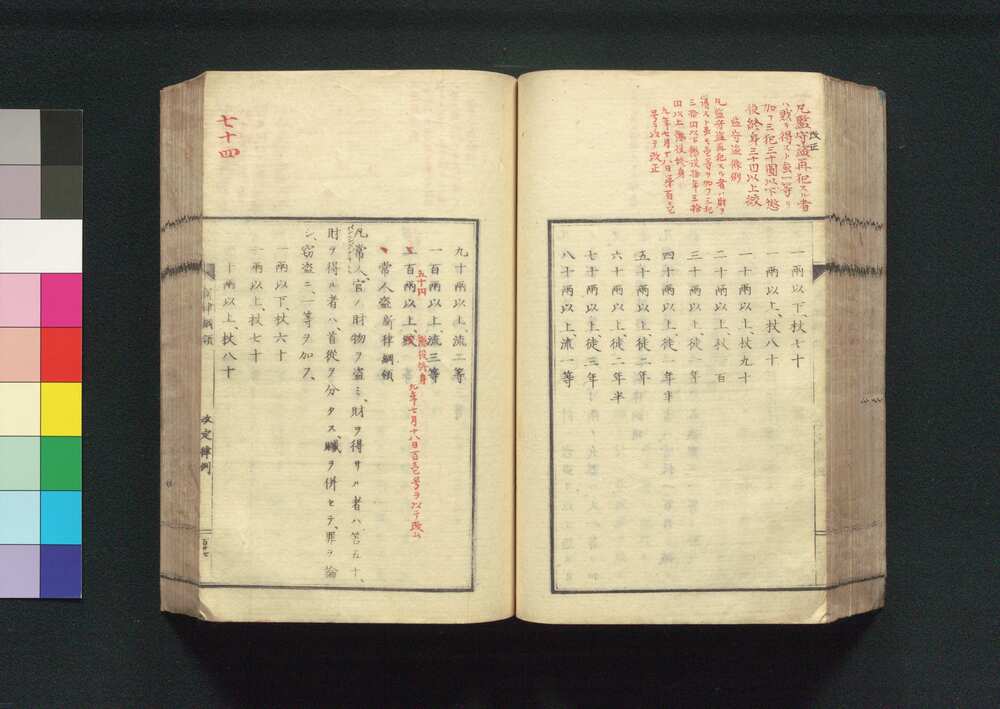 改正
凡監守盗再犯スル者
ハ財ヲ得スト雖一等ヲ
加フ三犯三十圓以下懲
役終身三十円以上絞
監守盗條例
凡監守盗再犯スル者ハ財ヲ
得スト雖モ壱等ヲ加フ三犯
三拾円以下懲役拾年三拾
円以上懲役終身
九年七月十八日第百壱
号ヲ以テ改正
一兩以下、杖七十
一兩以上、杖八十
一十兩以上、杖九十
二十兩以上、杖一百
三十兩以上、徒一年
四十兩以上、徒一年半
五十兩以上、徒二年
六十兩以上、徒二年半
七十兩以上、徒三年
八十兩以上、流一等
七十四
九十兩以上、流二等
一百兩以上、流三等
五十円 懲役終身 九年七月十八日百壱号ヲ以テ改ム
二百兩以上、絞
常人盗新律綱領
凡常人、官ノ財物ヲ盗ミ、財ヲ得サル者ハ、笞五十、
財ヲ得ル者ハ、首從ヲ分タス、贓ヲ併セテ、罪ヲ論
シ、窃盗ニ、一等ヲ加フ、
一兩以下、杖六十
一兩以上、杖七十
十兩以上、杖八十
律綱領
改定律例